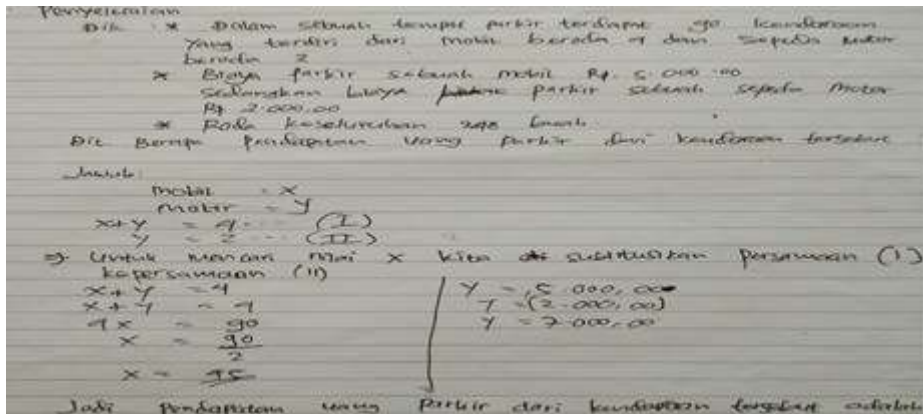 Penyelesaian
Dik * Dalam sebuah tempat parkir terdapat 90 kendaraan
yang terdiri dari mobil beroda 4 dan sepeda motor
beroda 2
* Biaya parkir sebuah mobil Rp. 5.000.00
sedangkan biaya parkir sebuah sepeda motor
Rp 2.000.00
* Roda keseluruhan 248 buah
Dit Berapa pendapatan uang parkir dari kendaraan tersebut
Jawab:
mobil = x
motor = y
x+y = 4 ... (I)
y = 2 ... (II)
⇒ Untuk mencari nilai x kita substitusikan persamaan (I)
kepersamaan (II)
x+y = 4
x+y = 4
4x = 90
x = 90
2
x = 45
y = 5.000,00
y = (2.000,00)
y = 7.000,00
Jadi pendapatan uang parkir dari kendaraan tersebut adalah